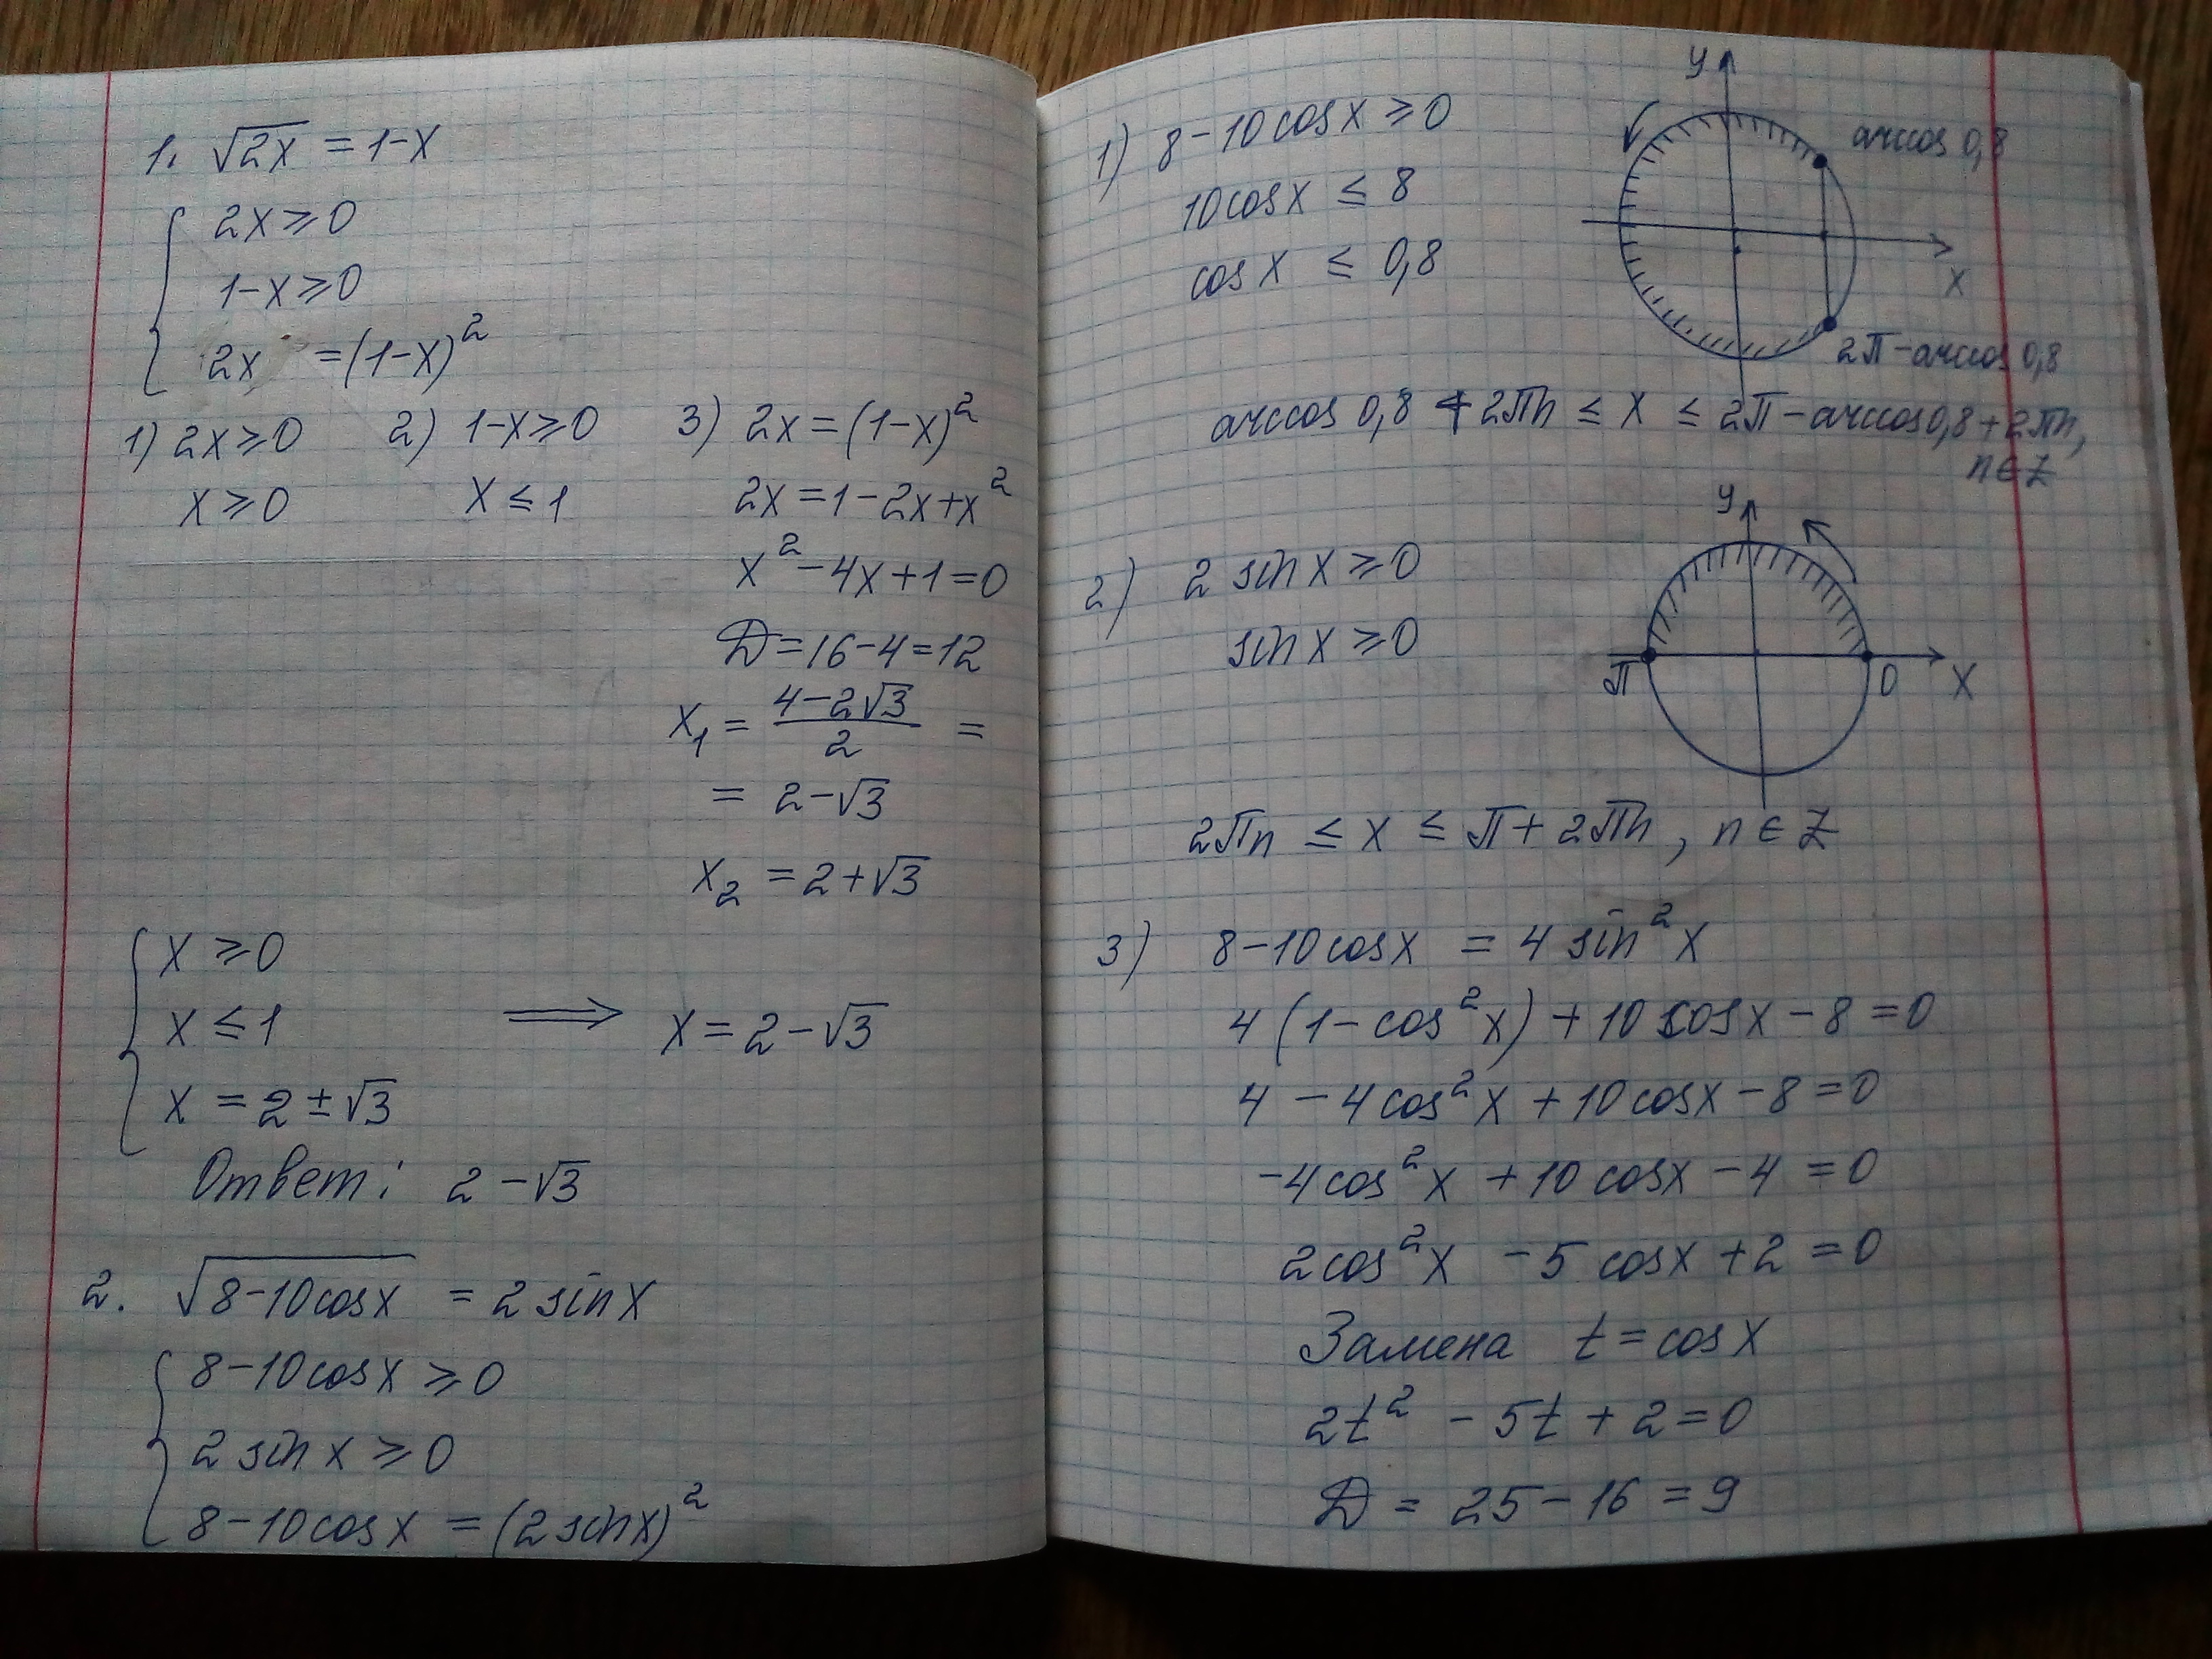 1. √2x = 1-x
2x ≥ 0
1-x ≥ 0
2x = (1-x)²
1) 2x ≥ 0 2) 1-x ≥ 0 3) 2x = (1-x)²
x ≥ 0 x ≤ 1 2x = 1-2x+x²
x² - 4x + 1 = 0
D = 16-4 = 12
x₁ = (4-2√3)/2 =
= 2-√3
x₂ = 2+√3
x ≥ 0
x ≤ 1 ⟹ x = 2-√3
x = 2 ± √3
Ответ: 2-√3
2. √(8-10cosx) = 2 sinx
8-10cosx ≥ 0
2 sinx ≥ 0
8-10cosx = (2sinx)²
1) 8-10cosx ≥ 0
10cosx ≤ 8
cosx ≤ 0,8
y
arccos 0,8
x
2π-arccos 0,8
arccos 0,8 + 2πn ≤ x ≤ 2π-arccos0,8+2πn,
n ∈ Z
2) 2 sinx ≥ 0
sinx ≥ 0
y
π 0 x
2πn ≤ x ≤ π + 2πn, n ∈ Z
3) 8-10cosx = 4 sin²x
4(1-cos²x) + 10cosx - 8 = 0
4 - 4cos²x + 10cosx - 8 = 0
-4cos²x + 10cosx - 4 = 0
2cos²x - 5cosx + 2 = 0
Замена t = cosx
2t² - 5t + 2 = 0
D = 25-16 = 9